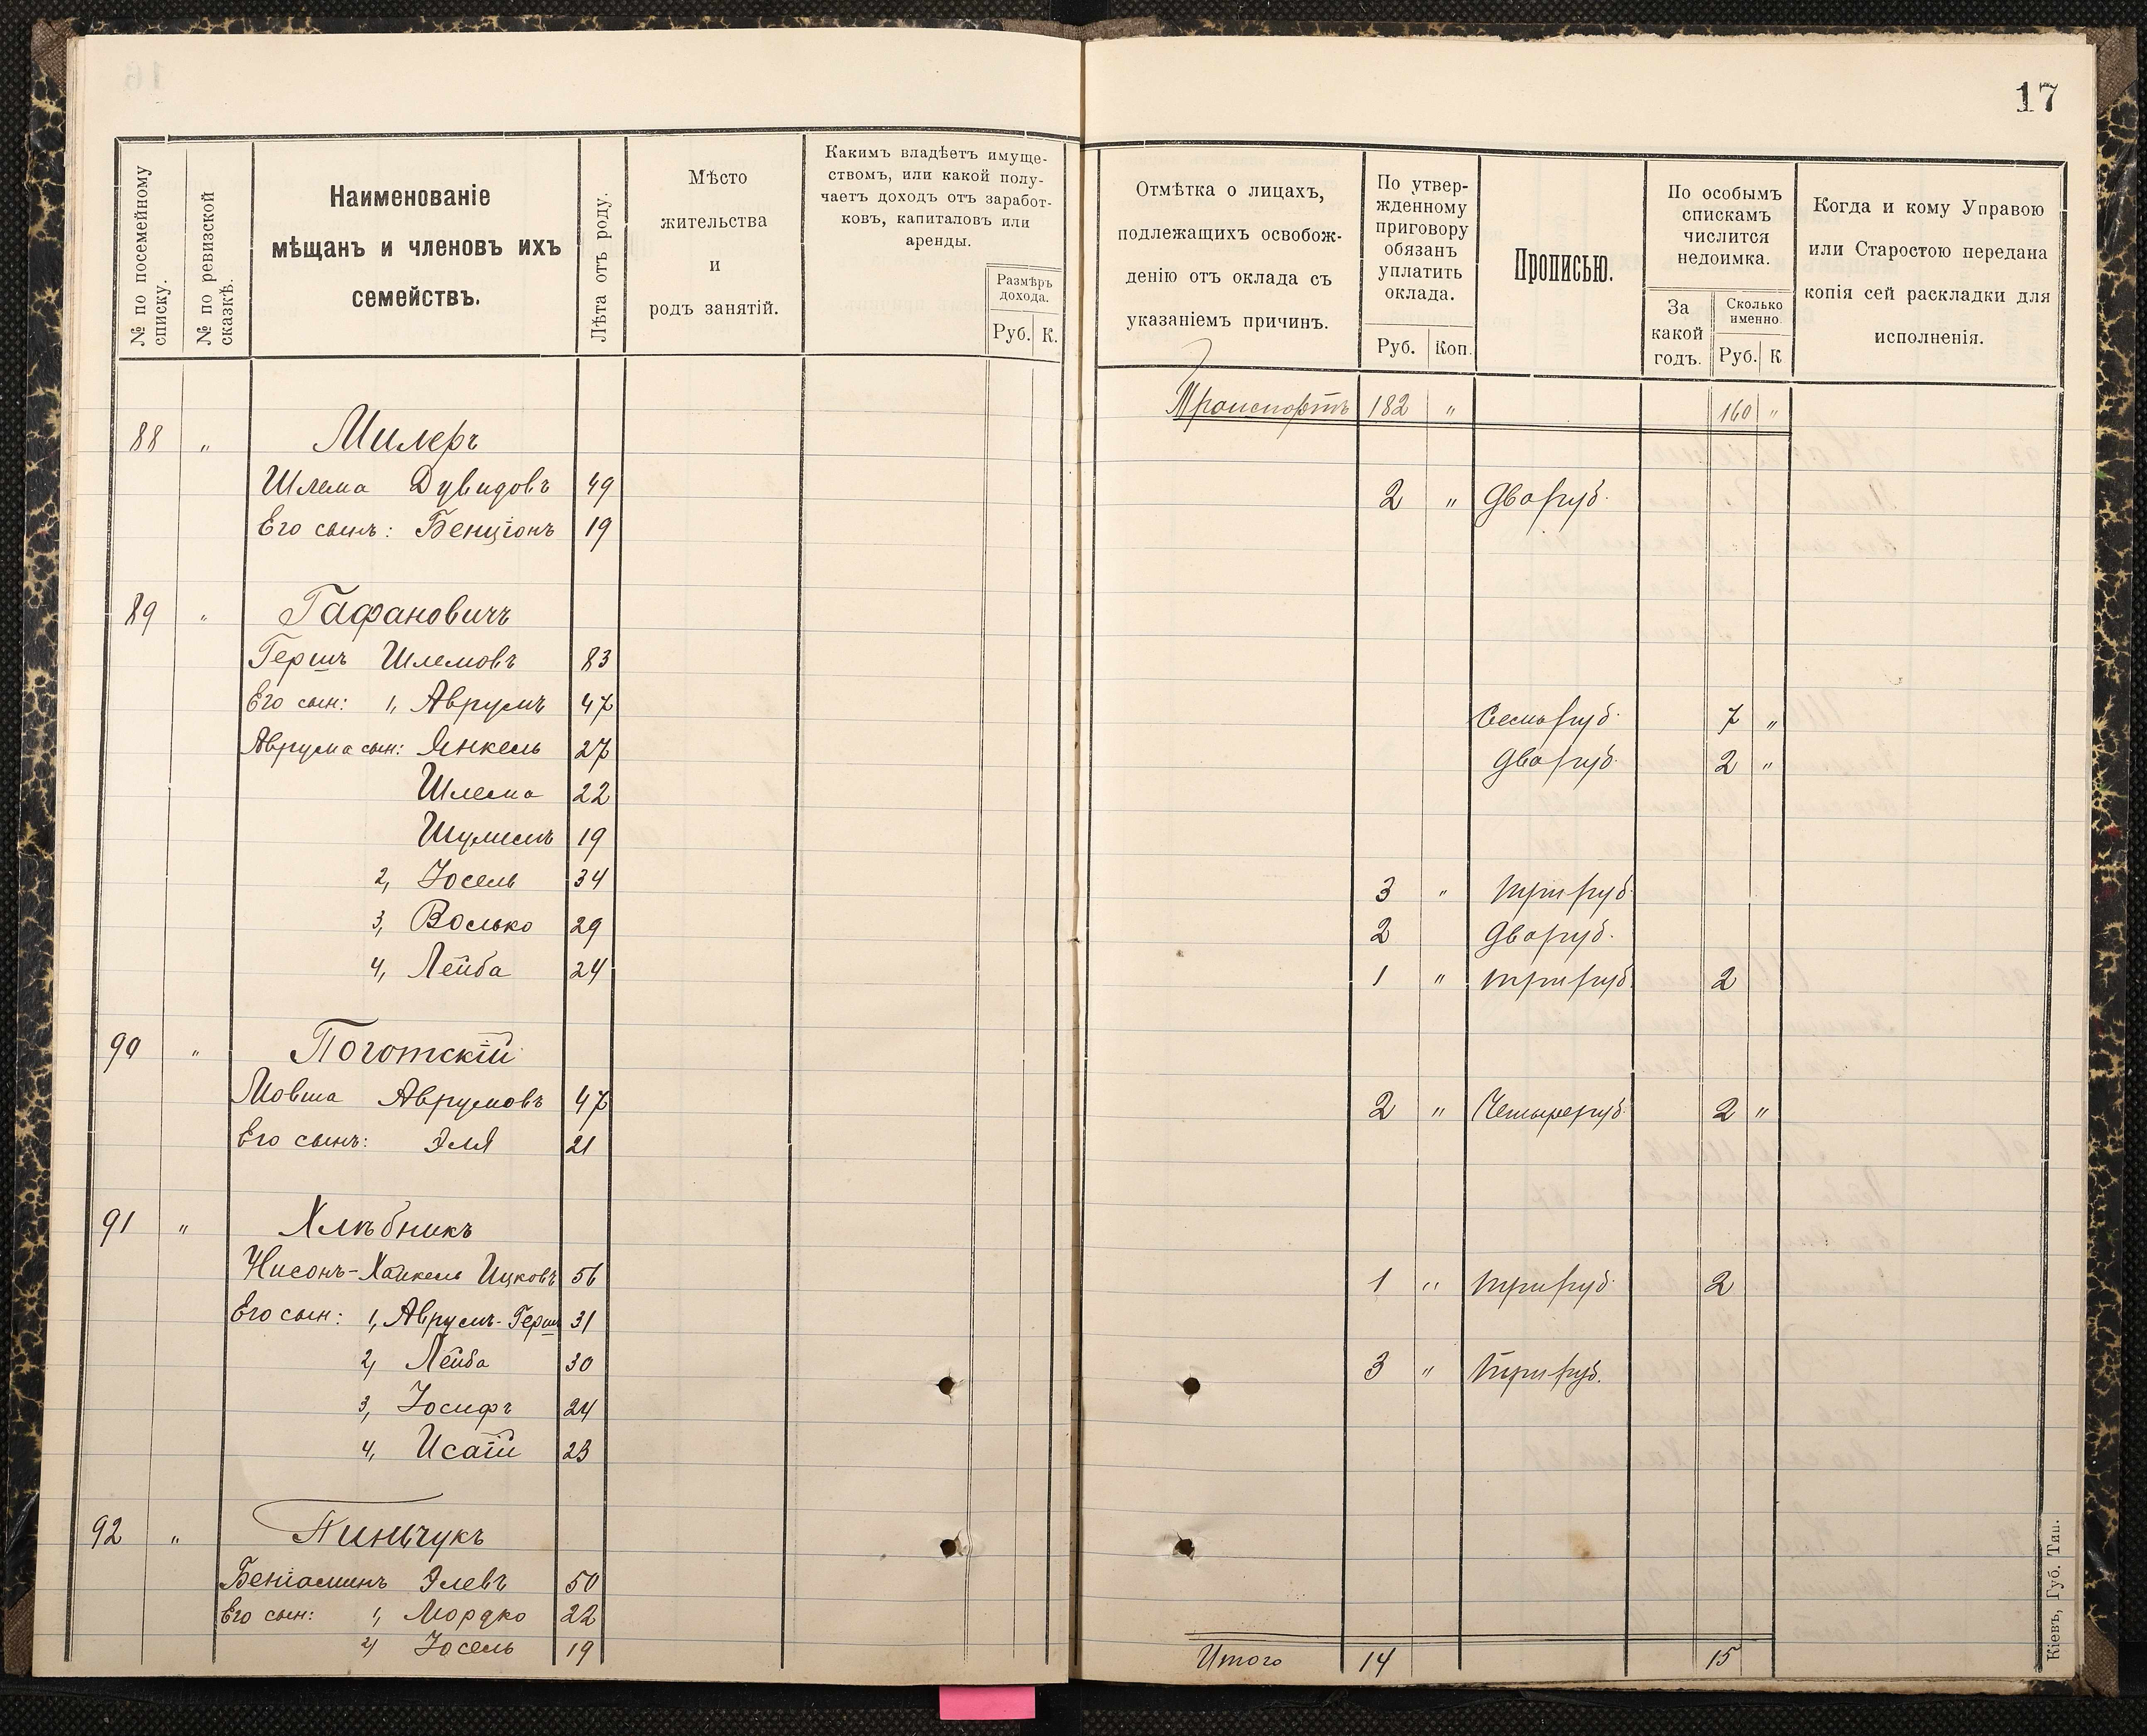 17
№ по посемейному списку.
№ по ревизской сказкѣ.
Наименованіе
мѣщанъ и членовъ ихъ
семействъ.
Лѣта отъ роду.
Мѣсто
жительства
и
родъ занятій.
Какимъ владѣетъ имуще-
ствомъ, или какой полу-
чаетъ доходъ отъ заработ-
ковъ, капиталовъ или
аренды.
Размѣръ
дохода.
Руб. К.
Отмѣтка о лицахъ,
подлежащихъ освобож-
денію отъ оклада съ
указаніемъ причинъ.
По утвер-
жденному
приговору
обязанъ
уплатить
оклада.
Руб. Коп.
Прописью.
По особымъ
спискамъ
числится
недоимка.
За
какой
годъ.
Сколько
именно.
Руб. К
Когда и кому Управою
или Старостою передана
копія сей раскладки для
исполненія.
Транспортъ 182 " 160 "
88 " Милеръ
Шлема Дувидовъ 49 2 " Два руб.
Его сынъ: Бенціонъ 19
89 " Гафановичъ
Гершъ Шлемовъ 83
Его сын: 1, Аврумъ 47 Семь руб. 7 "
Аврума сын: Янкель 27 Два руб. 2 "
Шлема 22
Шулимъ 19
2, Іосель 34 3 " три руб.
3, Волько 29 2 Два руб.
4, Лейба 24 1 " три руб. 2
90 " Поготскій
Мовша Аврумовъ 47 2 " Четыре руб. 2 "
Его сынъ: Эля 21
91 " Хлѣбникъ
Нисонъ-Хайкель Ицковъ 56 1 " три руб. 2
Его сын: 1, Аврумъ-Герш 31
2, Лейба 30 3 " Три руб.
3, Іосифъ 24
4, Исаій 23
92 " Пинчукъ
Беніаминъ Элевъ 50
Его сын: 1, Мордко 22
2, Іосель 19
Итого 14 15
Кіевъ, Губ. Тип.